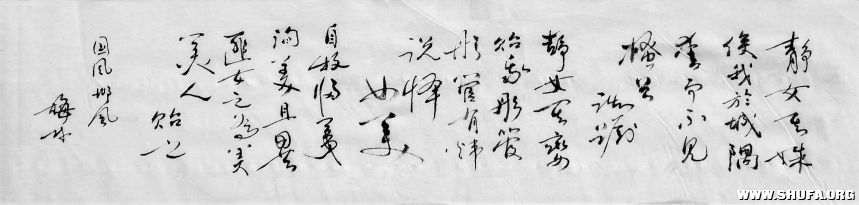 静女其姝
俟我於城隅
爱而不见
搔首
踟蹰
静女其娈
贻我彤管
彤管有炜
说怿
女美
自牧归荑
洵美且異
匪女之為美
美人
貽之
国风邶风
WWW.SHUFA.ORG